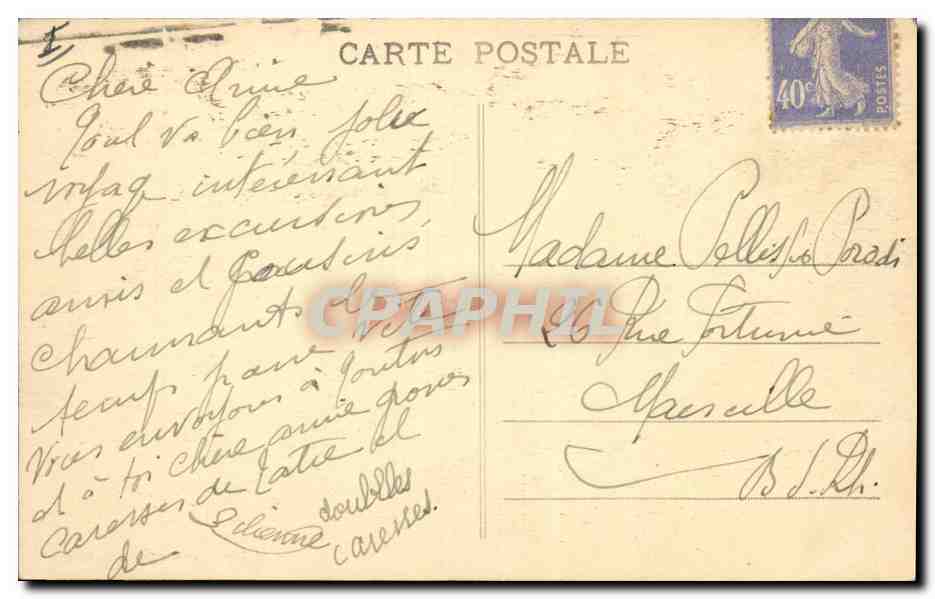 I
CARTE POSTALE
40c
POSTES
Chère Amie
Tout va bien jolie
voyage intéressant
belles excursions,
amis et cousins
charmants le
temps passe vite
Vous envoyons à toutes
et à toi chère amie grosses
caresses de et
de Etienne doubles
caresses.
Madame
26 Rue Fortuné
Marseille
B d. Rh.
CPAPHIL